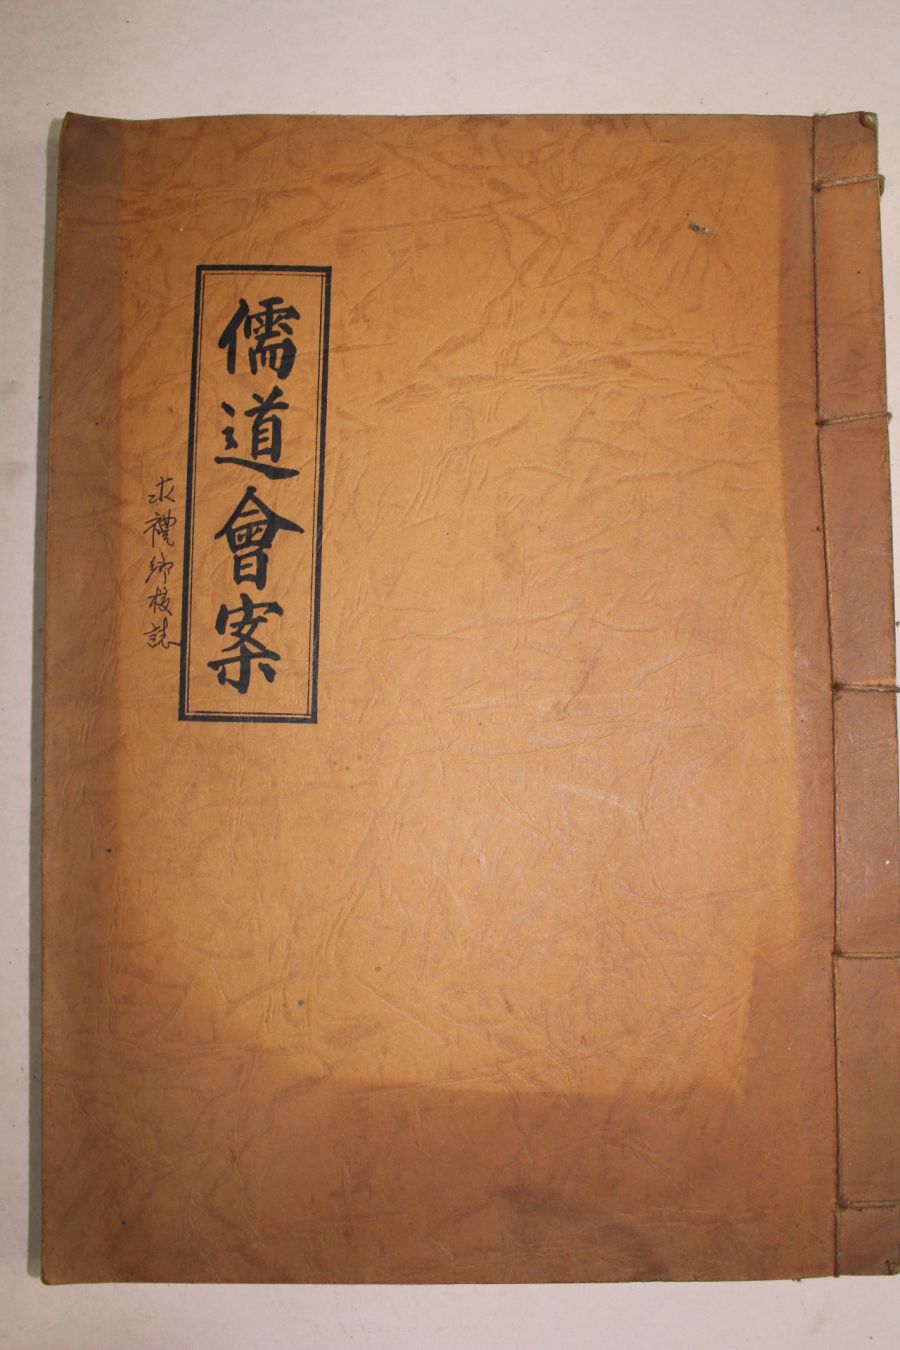 儒道會案
求禮鄉校誌